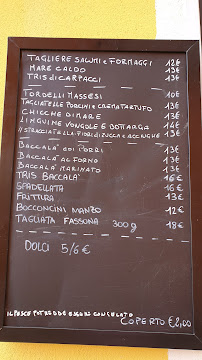 TAGLIERE SALUMI e FORMAGGI 12€
MARE CALDO 13€
TRIS DI CARPACCI 13€
TORDELLI MASSESI 10€
TAGLIATELLE PORCINI e CREMA TARTUFO 13€
CHICCHE DI MARE 13€
LINGUINE VONGOLE E BOTTARGA 13€
STRACCIATELLA FIORI DI ZUCCA e ACCIUGHE 13€
BACCALA' COI PORRI 13€
BACCALA' AL FORNO 13€
BACCALA' MARINATO 13€
TRIS BACCALA' 16€
SPADELLATA 16€
FRITTURA 13€
BOCCONCINI MANZO 12€
TAGLIATA FASSONA 300g 18€
DOLCI 5/6€
IL PESCE POTREBBE ESSERE CONGELATO
COPERTO €2,00